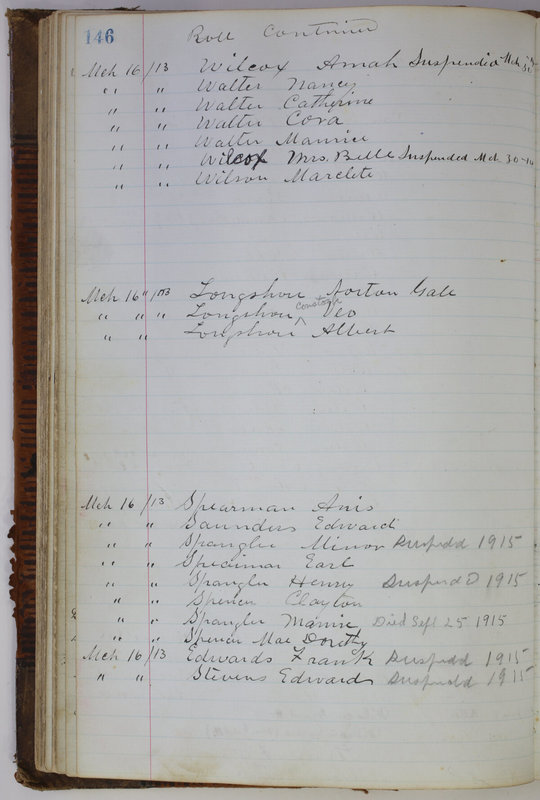 146 Roll Continued
Mch 16/13 Wilcox Amah Suspended Mch 30
" " Walter Nancy
" " Walter Catherine
" " Walter Cora
" " Walter Maurice
" " Wilcox Mrs. Belle Suspended Mch 30-14
" " Wilson Marclete
Mch 16"/13 Longshore Norton Gale
" " " Longshore Constoga Veo
" " Longshore Albert
Mch 16/13 Spearman Anis
" " Saunders Edward
" " Spangler Minor Suspedd 1915
" " Specimar Earl
" " Spangler Henry Suspend D 1915
" " Spencer Clayton
" " Spangler Mamie Died Sept 25 1915
" " Spencer Mae Dorothy
Mch 16/13 Edwards Frank Suspedd 1915
" " Stevens Edward Suspended 1915